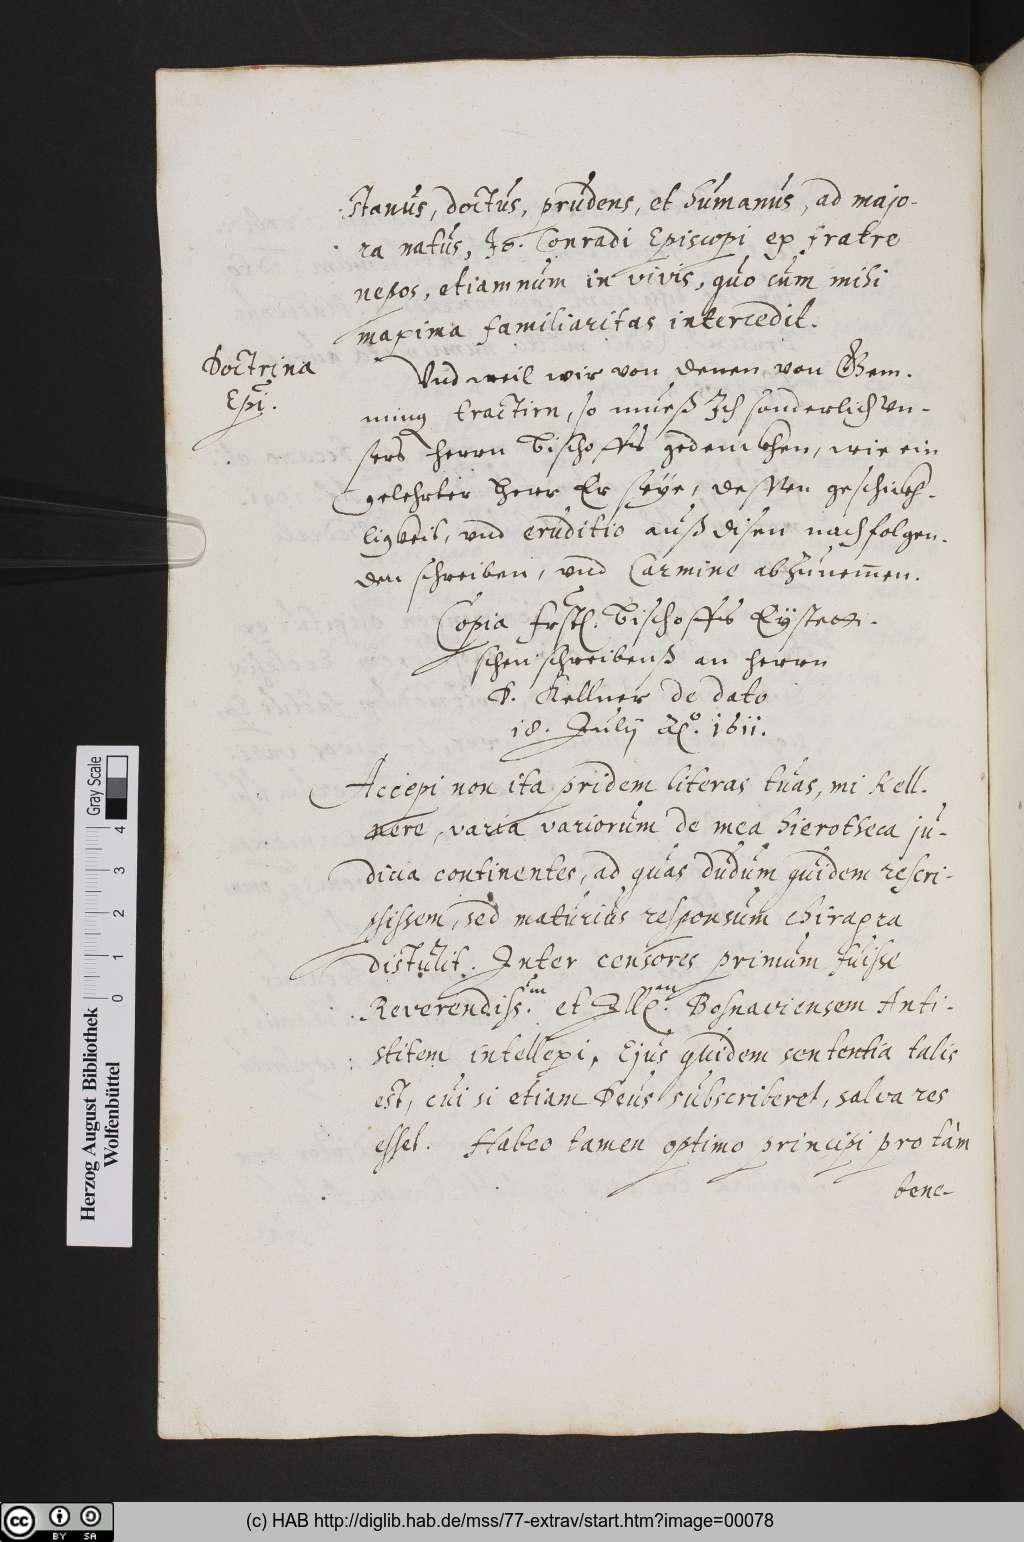 stanus, doctus, prudens, et humanus, ad majo-
ra natus, Jo. Conradi Episcopi ex fratre
nepos, etiamnum in vivis, quo cum mihi
maxima familiaritas intercedit.
Doctrina
Epi.
Vnd weil wir von denen von Gem-
ming tractirn, so mueß Ich sonderlich Vn-
sers herrn Bischoffs gedenckhen, wie ein
gelehrter Herr Er seye, dessen geschickh-
ligkeit, vnd eruditio auß disen nachfolgen-
den schreiben, vnd Carmine abzunemen.
Copia frstl. Bischoffs Eystett-
schen schreibenß an herrn
D. Kellner de dato
18. July Ao. 1611.
Accepi non ita pridem literas tuas, mi Kell-
nere, varia variorum de mea hierotheca ju-
dicia continentes, ad quas dudum quidem rescri-
psissem, sed maturius responsum chiragra
distulit. Inter censores primum fuisse
Reverendiss.um et Ill.em Bosnaviensem Anti-
stitem intellexi, Ejus quidem sententia talis
est, cui si etiam Deus subscriberet, salva res
esset. Habeo tamen optimo principi pro tam
bene-
Herzog August Bibliothek
Wolfenbüttel
0 1 2 3 4
Gray Scale
CC BY SA
(c) HAB http://diglib.hab.de/mss/77-extrav/start.htm?image=00078